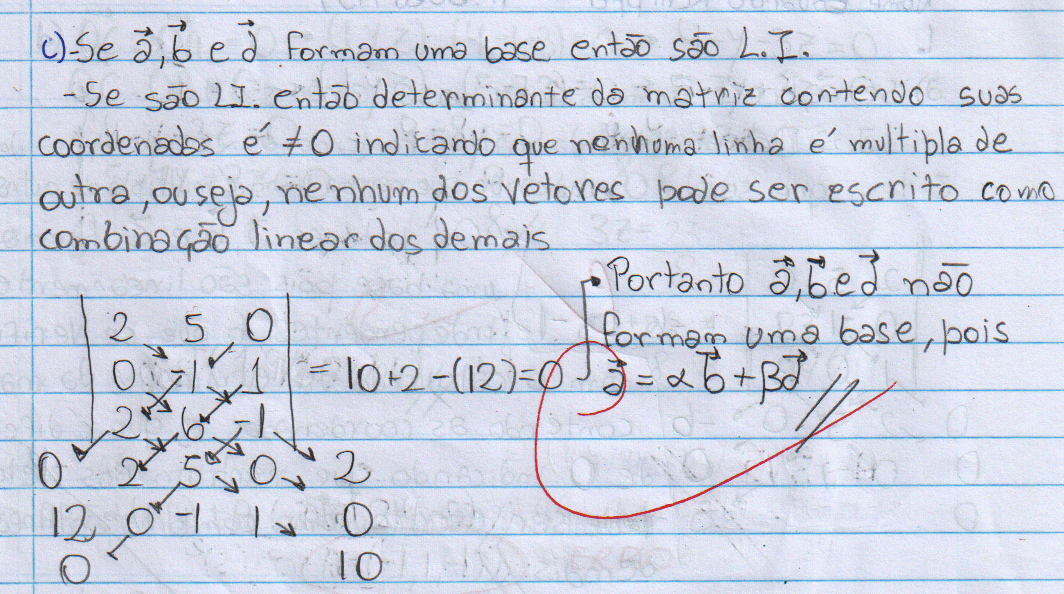 c)-Se a⃗, b⃗ e d⃗ formam uma base então são L.I.
-Se são LI. então determinante da matriz contendo suas
coordenadas é ≠0 indicando que nenhuma linha é multipla de
outra, ou seja, nenhum dos vetores pode ser escrito como
combinação linear dos demais
Portanto a⃗, b⃗ e d⃗ não
formam uma base, pois
2 5 0
0 -1 1 = 10+2-(12)=0 a⃗ = αb⃗ + βd⃗
2 6 -1
0 2 5 0 2
12 0 -1 1 0
0 10